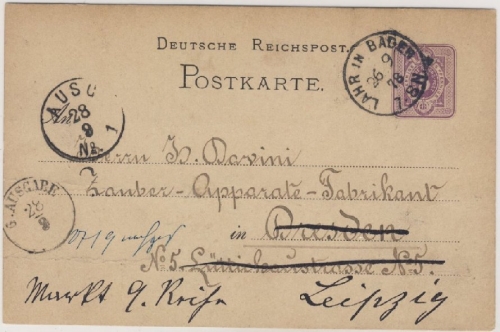 DEUTSCHE REICHSPOST.
POSTKARTE.
LAHR IN BADEN
26 9 78
7-8N.
AUSG
28
9
No. 1
An
Herrn H. Davini
Zauber-Apparate-Fabrikant
in Dresden
No 5. Lüttichaustrasse No 5.
G. AUSGABE
Markt 9. Reihe Leipzig